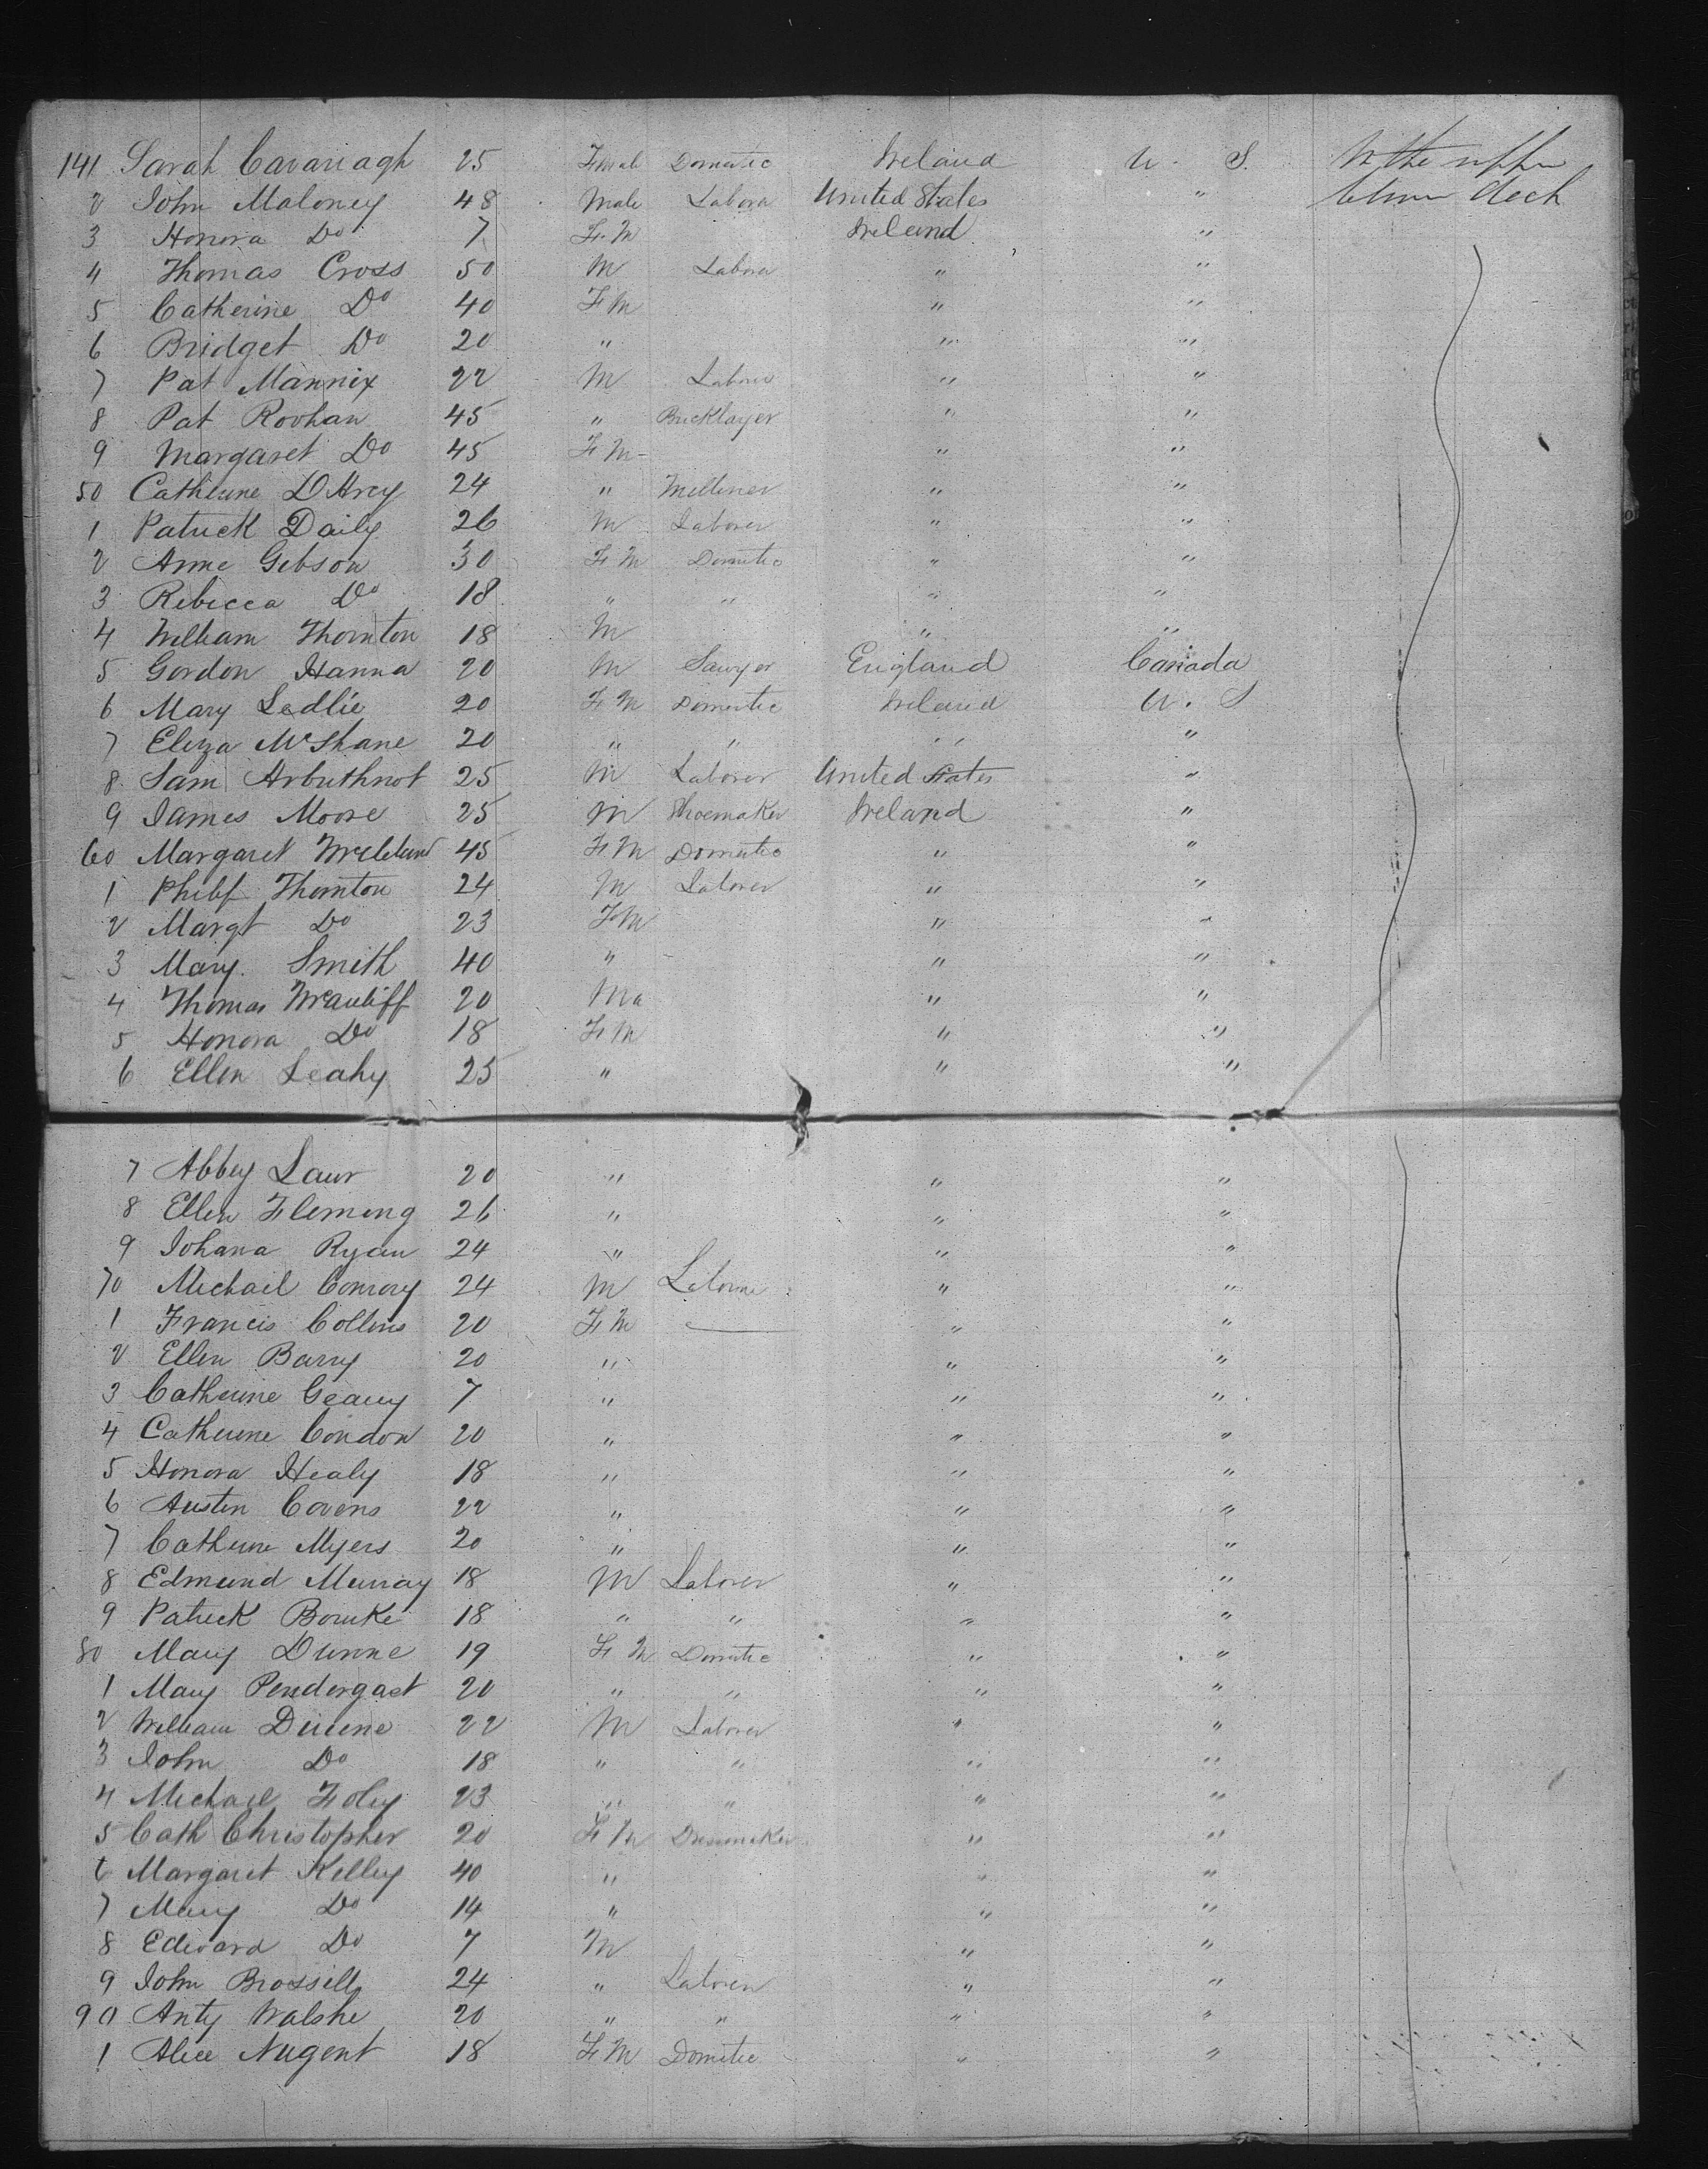 141 Sarah Cavanagh 25 Femal Domestic Ireland U. S. In the upper
2 John Maloney 48 Male Labora United States " between deck
3 Honora Do 7 F. M Ireland "
4 Thomas Cross 50 M Labora " "
5 Catherine Do 40 F M " "
6 Bridget Do 20 " " "
7 Pat Mannix 22 M Laborer " "
8 Pat Roohan 45 " Bricklayer " "
9 Margaret Do 45 F M - " "
50 Catherine D Arcy 24 " Milliner " "
1 Patrick Daily 26 M Laborer " "
2 Anne Gibson 30 F M Domestic " "
3 Rebecca Do 18 " " " "
4 William Thornton 18 M " "
5 Gordon Hanna 20 M Sawyer England Canada
6 Mary Ledlie 20 F M Domestic Ireland U. S
7 Eliza McShane 20 " " " "
8 Sam Arbuthnot 25 M Laborer United States "
9 James Moore 25 M Shoemaker Ireland "
60 Margaret 45 F M Domestic " "
1 Philip Thornton 24 M Laborer " "
2 Margt Do 23 F M " "
3 Mary Smith 40 " " "
4 Thomas McAuliff 20 Ma " "
5 Honora Do 18 F M " "
6 Ellen Leahy 25 " " "
7 Abbey 20 " " "
8 Ellen Fleming 26 " " "
9 Johana Ryan 24 " " "
70 Michael Conroy 24 M Laborer " "
1 Francis Collins 20 F M " "
2 Ellen Barry 20 " " "
3 Catherine Geary 7 " " "
4 Catherine Condon 20 " " "
5 Honora Healy 18 " " "
6 Austin Covens 22 " " "
7 Catherine Myers 20 " " "
8 Edmund Murray 18 M Laborer " "
9 Patrick Bourke 18 " " " "
80 Mary Dunne 19 F M Domestic " "
1 Mary Pendergast 20 " " " "
2 William Dunne 22 M Laborer " "
3 John Do 18 " " " "
4 Michael Foley 23 " " " "
5 Cath Christopher 20 F M Dressmaker " "
6 Margaret Kelley 40 " " "
7 Mary Do 14 " " "
8 Edward Do 7 M " "
9 John Brossill 24 " Laborer " "
90 Anty Walshe 20 " " " "
1 Alice Nugent 18 F M Domestic " "